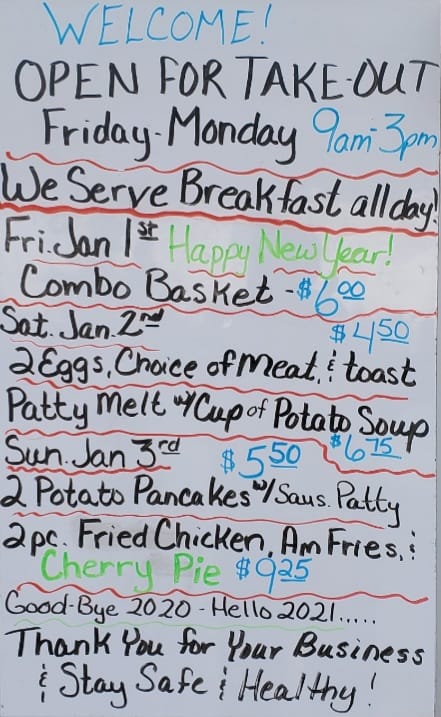 WELCOME!
OPEN FOR TAKE-OUT
Friday-Monday 9am-3pm
We Serve Breakfast all day!
Fri. Jan 1st Happy New Year!
Combo Basket - $6.00
Sat. Jan. 2nd $4.50
2 Eggs, Choice of Meat, & toast
Patty Melt w/ Cup of Potato Soup
$6.75
Sun. Jan 3rd $5.50
2 Potato Pancakes w/ Saus. Patty
2 pc. Fried Chicken, Am Fries, &
Cherry Pie $9.25
Good-Bye 2020 - Hello 2021.....
Thank You for Your Business
& Stay Safe & Healthy!